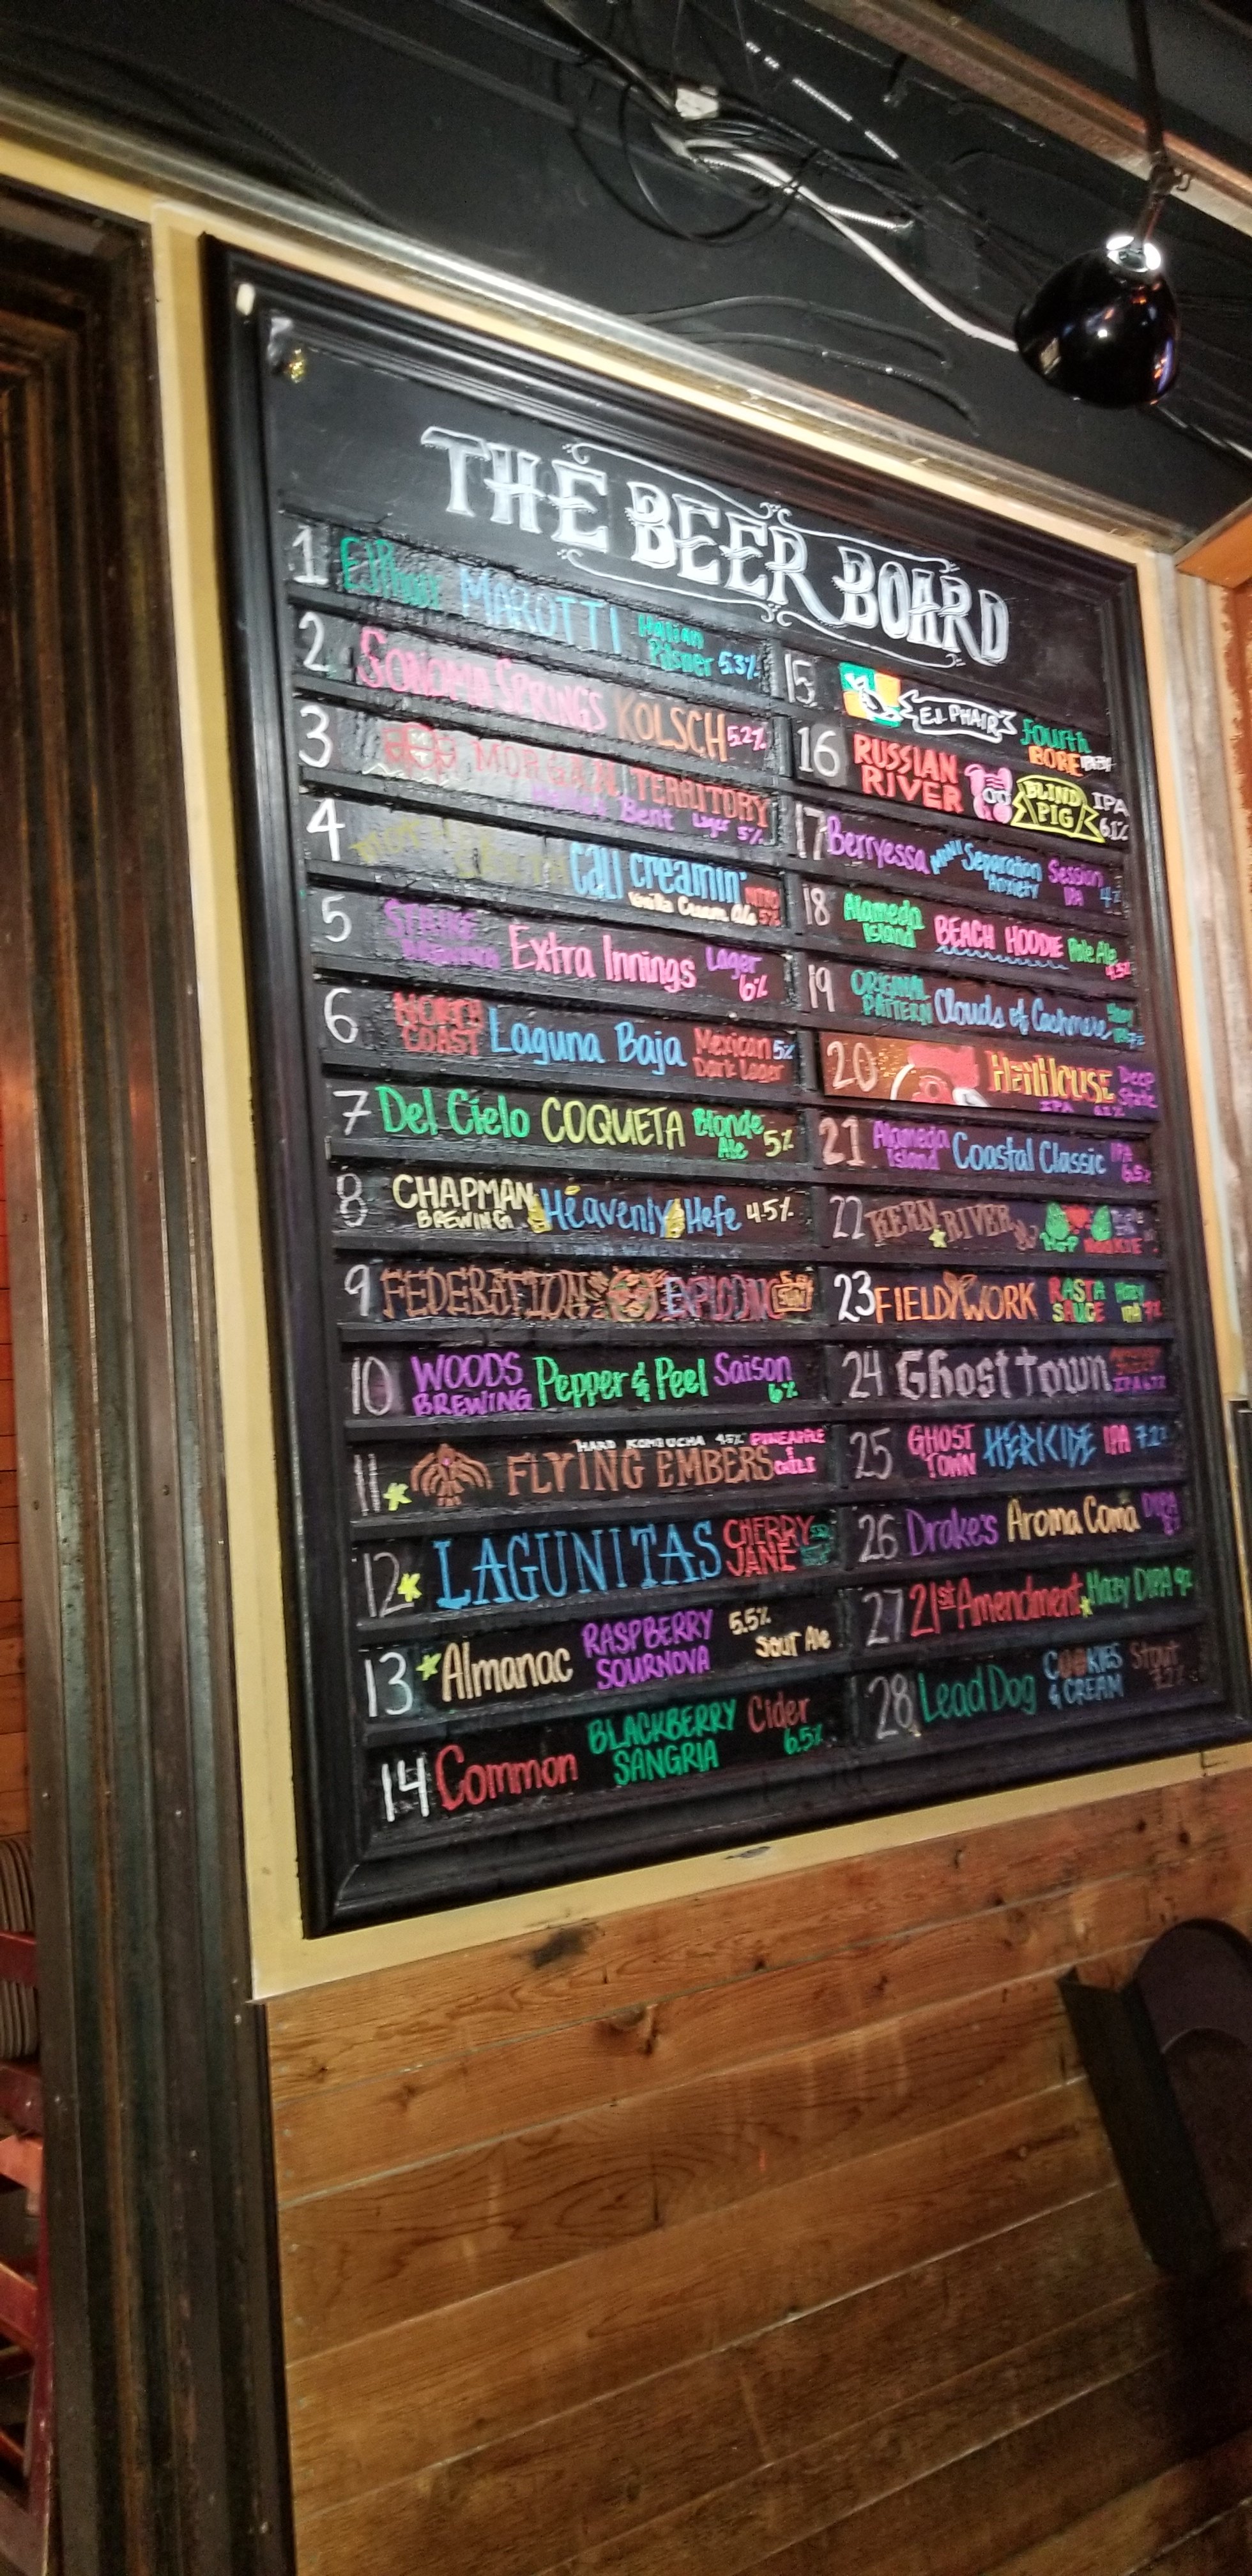 THE BEER BOARD
1 EJPhair MAROTTI Italian Pilsner 5.3%
2 SONOMA SPRINGS KOLSCH 5.2%
3 MORGAN TERRITORY Bent Lager 5%
4 Cali Creamin' NITRO Vanilla Cream Ale 5%
5 STRIKE BREWING Extra Innings Lager 6%
6 NORTH COAST Laguna Baja Mexican Dark Lager 5%
7 Del Cielo COQUETA Blonde Ale 5%
8 CHAPMAN BREWING Heavenly Hefe 4.5%
9 FEDERATION
10 WOODS BREWING Pepper & Peel Saison 6%
11 FLYING EMBERS HARD KOMBUCHA 4.5% PINEAPPLE & CHILI
12 LAGUNITAS CHERRY JANE
13 Almanac RASPBERRY SOURNOVA 5.5% Sour Ale
14 Common BLACKBERRY SANGRIA Cider 6.5%
15 E.J. PHAIR Fourth BORE
16 RUSSIAN RIVER BLIND PIG IPA 6.1%
17 Berryessa MINI Separation Anxiety Session IPA 4%
18 Alameda Island BEACH HOODIE Pale Ale 4.5%
19 ORIGINAL PATTERN Clouds of Cashmere
20 HENHOUSE Deep State IPA
21 Alameda Island Coastal Classic IPA 6.5%
22 KERN RIVER
23 FIELDWORK RASTA SAUCE Hazy IPA 7%
24 Ghost town
25 GHOST TOWN HERICIDE IPA 7.2%
26 Drake's Aroma Coma DIPA
27 21st Amendment Hazy DIPA 9%
28 Lead Dog COOKIES & CREAM Stout 7.2%